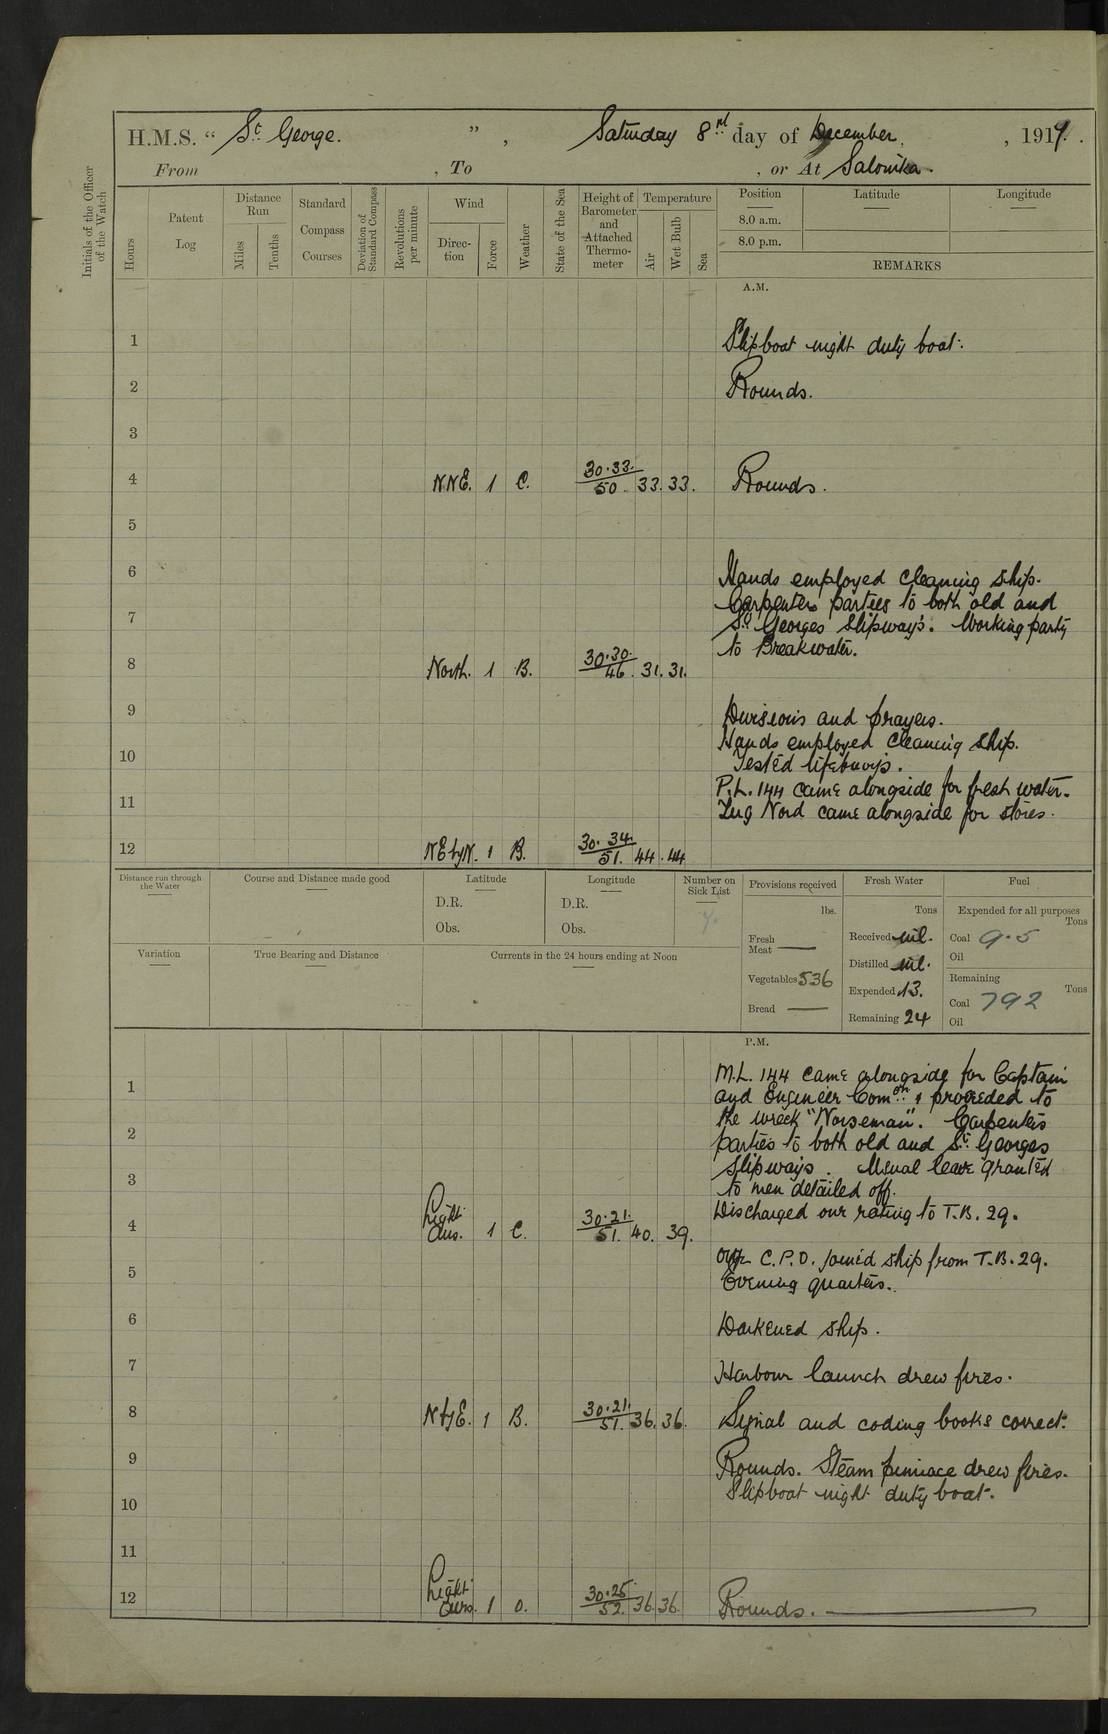 H.M.S. " St. George. ", Saturday 8rd day of December, , 1917.
From , To , or At Salonika.
Initials of the Officer of the Watch
Hours
Patent Log
Distance Run
Miles
Tenths
Standard Compass Courses
Deviation of Standard Compass
Revolutions per minute
Wind
Direc-tion
Force
Weather
State of the Sea
Height of Barometer and Attached Thermo-meter
Temperature
Air
Wet Bulb
Sea
Position
Latitude
Longitude
8.0 a.m.
8.0 p.m.
REMARKS
A.M.
1 Slipboat night duty boat.
2 Rounds.
3
4 NNE. 1 C. 30.33. 50. 33. 33. Rounds.
5
6 Hands employed cleaning ship.
Carpenters parties to both old and
7 St. Georges Slipways. Working party
to Breakwater.
8 North. 1 B. 30.30. 46. 31. 31.
9 Divisions and prayers.
Hands employed cleaning ship.
10 Tested lifebuoys.
P.L. 144 came alongside for fresh water.
11 Tug Nord came alongside for stores.
12 NEbyN. 1 B. 30.34. 51. 44. 44
Distance run through the Water
Course and Distance made good
Latitude
D.R.
Obs.
Longitude
D.R.
Obs.
Number on Sick List
7.
Provisions received
lbs.
Fresh Meat —
Vegetables 536
Bread —
Fresh Water
Tons
Received nil.
Distilled nil.
Expended 13.
Remaining 24
Fuel
Expended for all purposes
Tons
Coal 9.5
Oil
Remaining
Tons
Coal 792
Oil
Variation
True Bearing and Distance
Currents in the 24 hours ending at Noon
P.M.
1 M.L. 144 came alongside for Captain
and Engineer Comdr. & proceeded to
the wreck "Norseman". Carpenters
2 parties to both old and St. Georges
Slipways. Usual leave granted
3 to men detailed off.
Discharged our rating to T.B. 29.
4 Light Airs. 1 C. 30.21. 51. 40. 39.
C.P.O. joined ship from T.B. 29.
5 Evening quarters.
6 Darkened ship.
7 Harbour launch drew fires.
8 NbyE. 1 B. 30.21. 51. 36. 36. Signal and coding books correct.
9 Rounds. Steam pinnace drew fires.
10 Slipboat night duty boat.
11
12 Light Airs. 1 O. 30.25 52. 36. 36. Rounds.